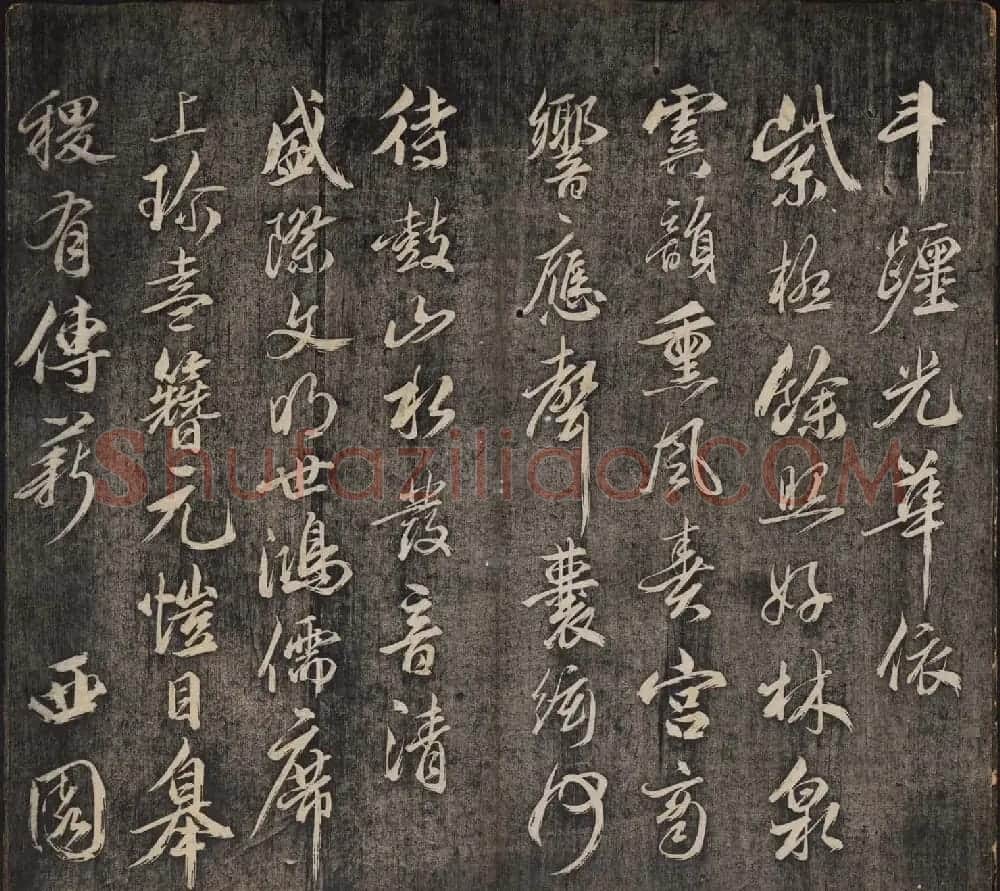 斗躔光華依
紫極餘照好林泉
虞韻熏風奏宮商
響應聲囊絃何
待鼓山水發音清
盛際文明世鴻儒席
上珍盍簪元愷日皋
稷有傳薪 西園
Shufaziliao.COM